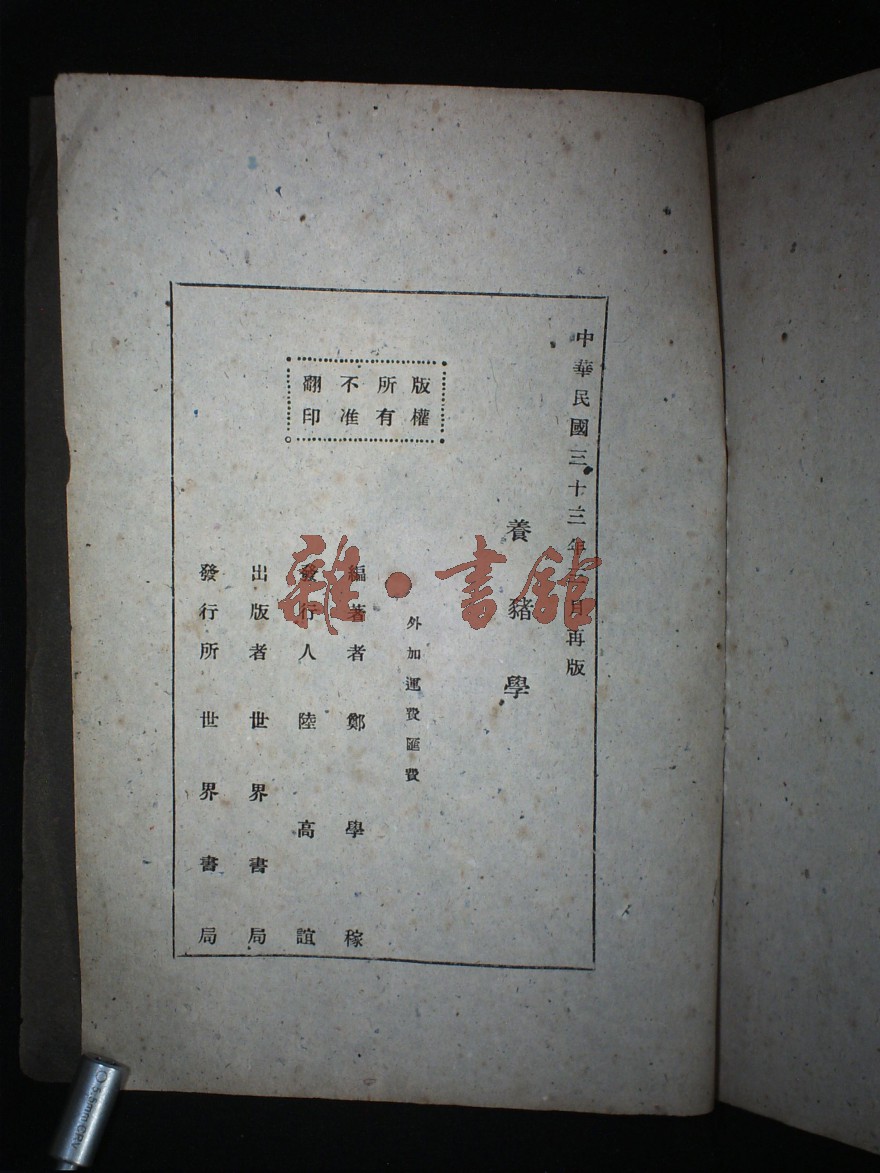 中華民國三十三年 月再版
養豬學
版權
所有
不准
翻印
外加運費匯費
編著者 鄭學稼
發行人 陸高誼
出版者 世界書局
發行所 世界書局
雜·書館